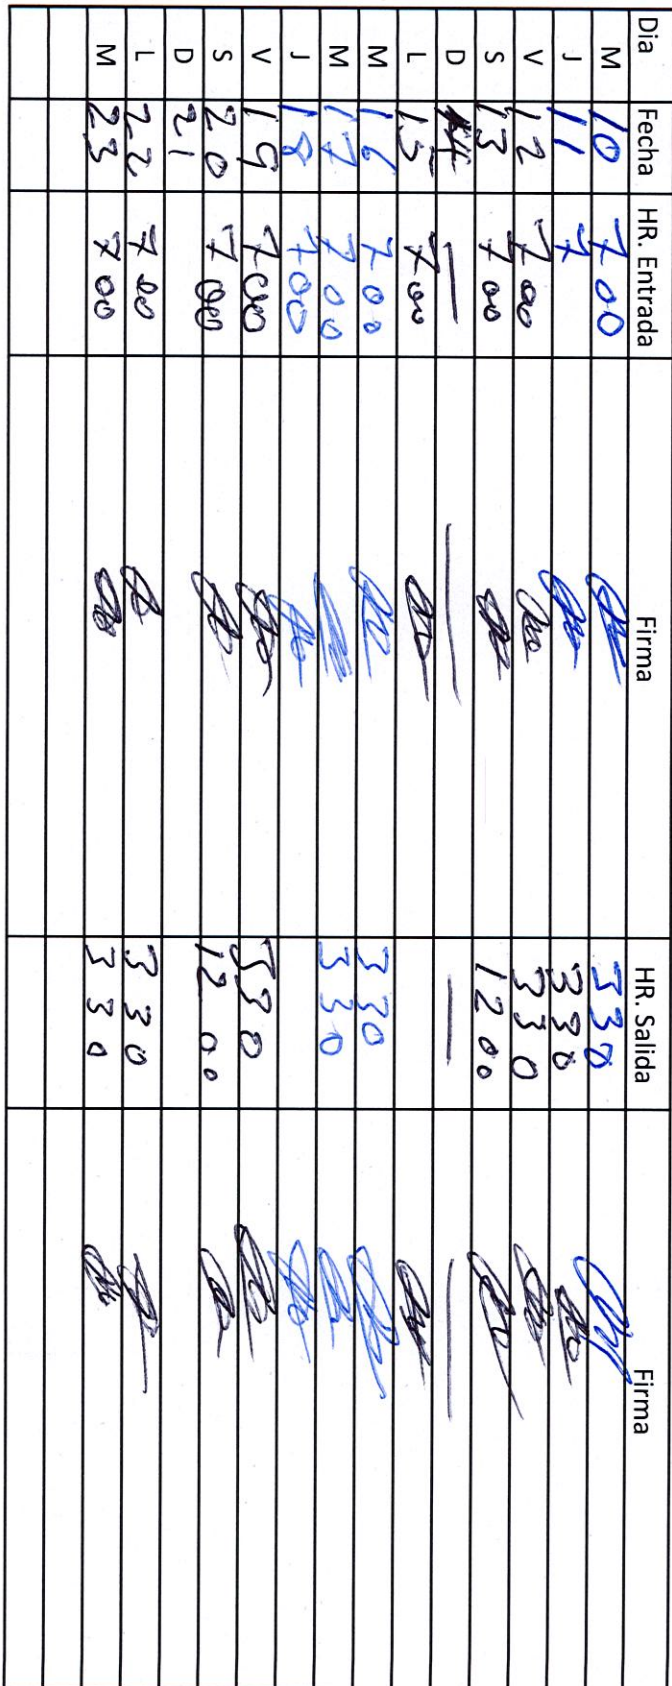 Dia Fecha HR. Entrada Firma HR. Salida Firma
M 10 7 00 3 30
J 11 7 3 30
V 12 7 00 3 30
S 13 7 00 12 00
D 14 — — — —
L 15 7 00
M 16 7 00 3 30
M 17 7 00 3 30
J 18 7 00
V 19 7 00 3 30
S 20 7 00 12 00
D 21
L 22 7 00 3 30
M 23 7 00 3 30